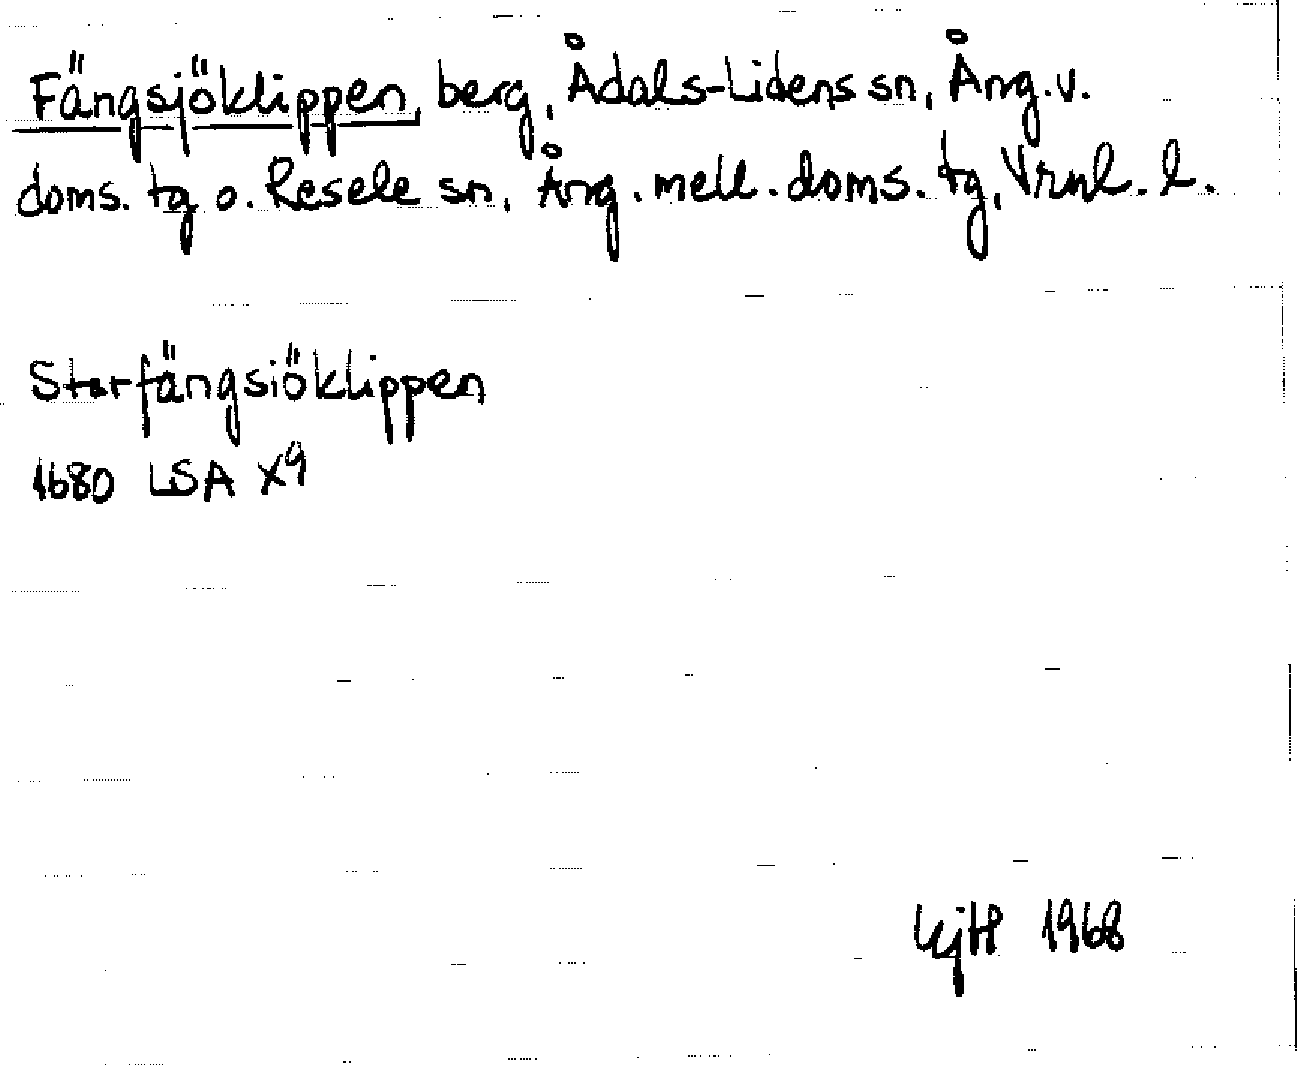 Fängsjöklippen, berg, Ådals-Lidens sn, Ång.v.
doms. tg o. Resele sn, Ång. mell. doms. tg, Vrnl. l.
Starfängsiöklippen
1680 LSA X9
1968